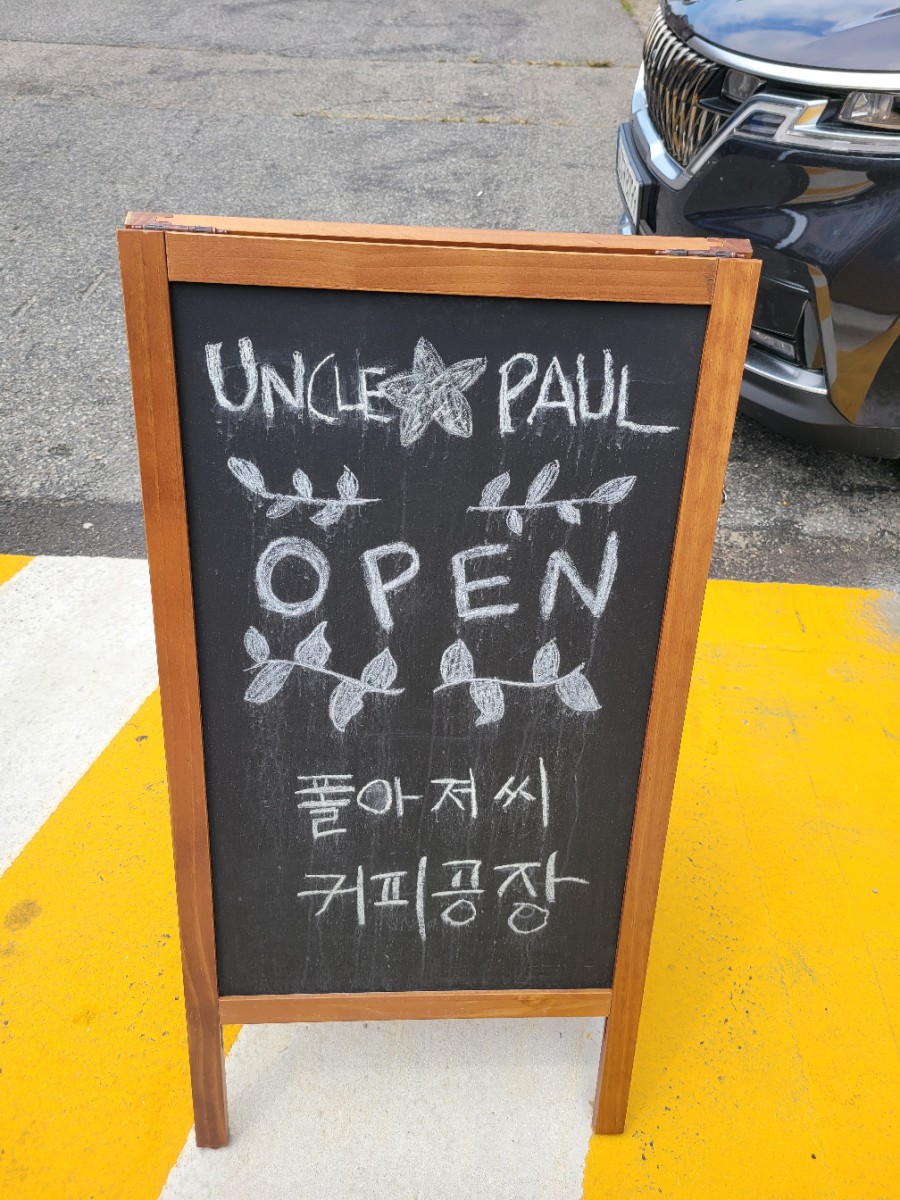 UNCLE PAUL
OPEN
폴아저씨
커피공장